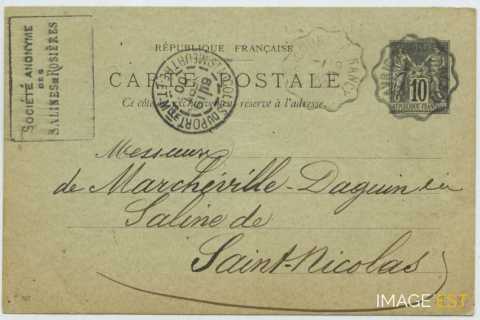 SOCIÉTÉ ANONYME
DES
SALINES DE ROSIÈRES
RÉPUBLIQUE FRANÇAISE
CARTE POSTALE
Ce côté est exclusivement réservé à l'adresse.
10
Messieurs
de Marcheville-Daguin &
Saline de
Saint-Nicolas
IMAGE EST